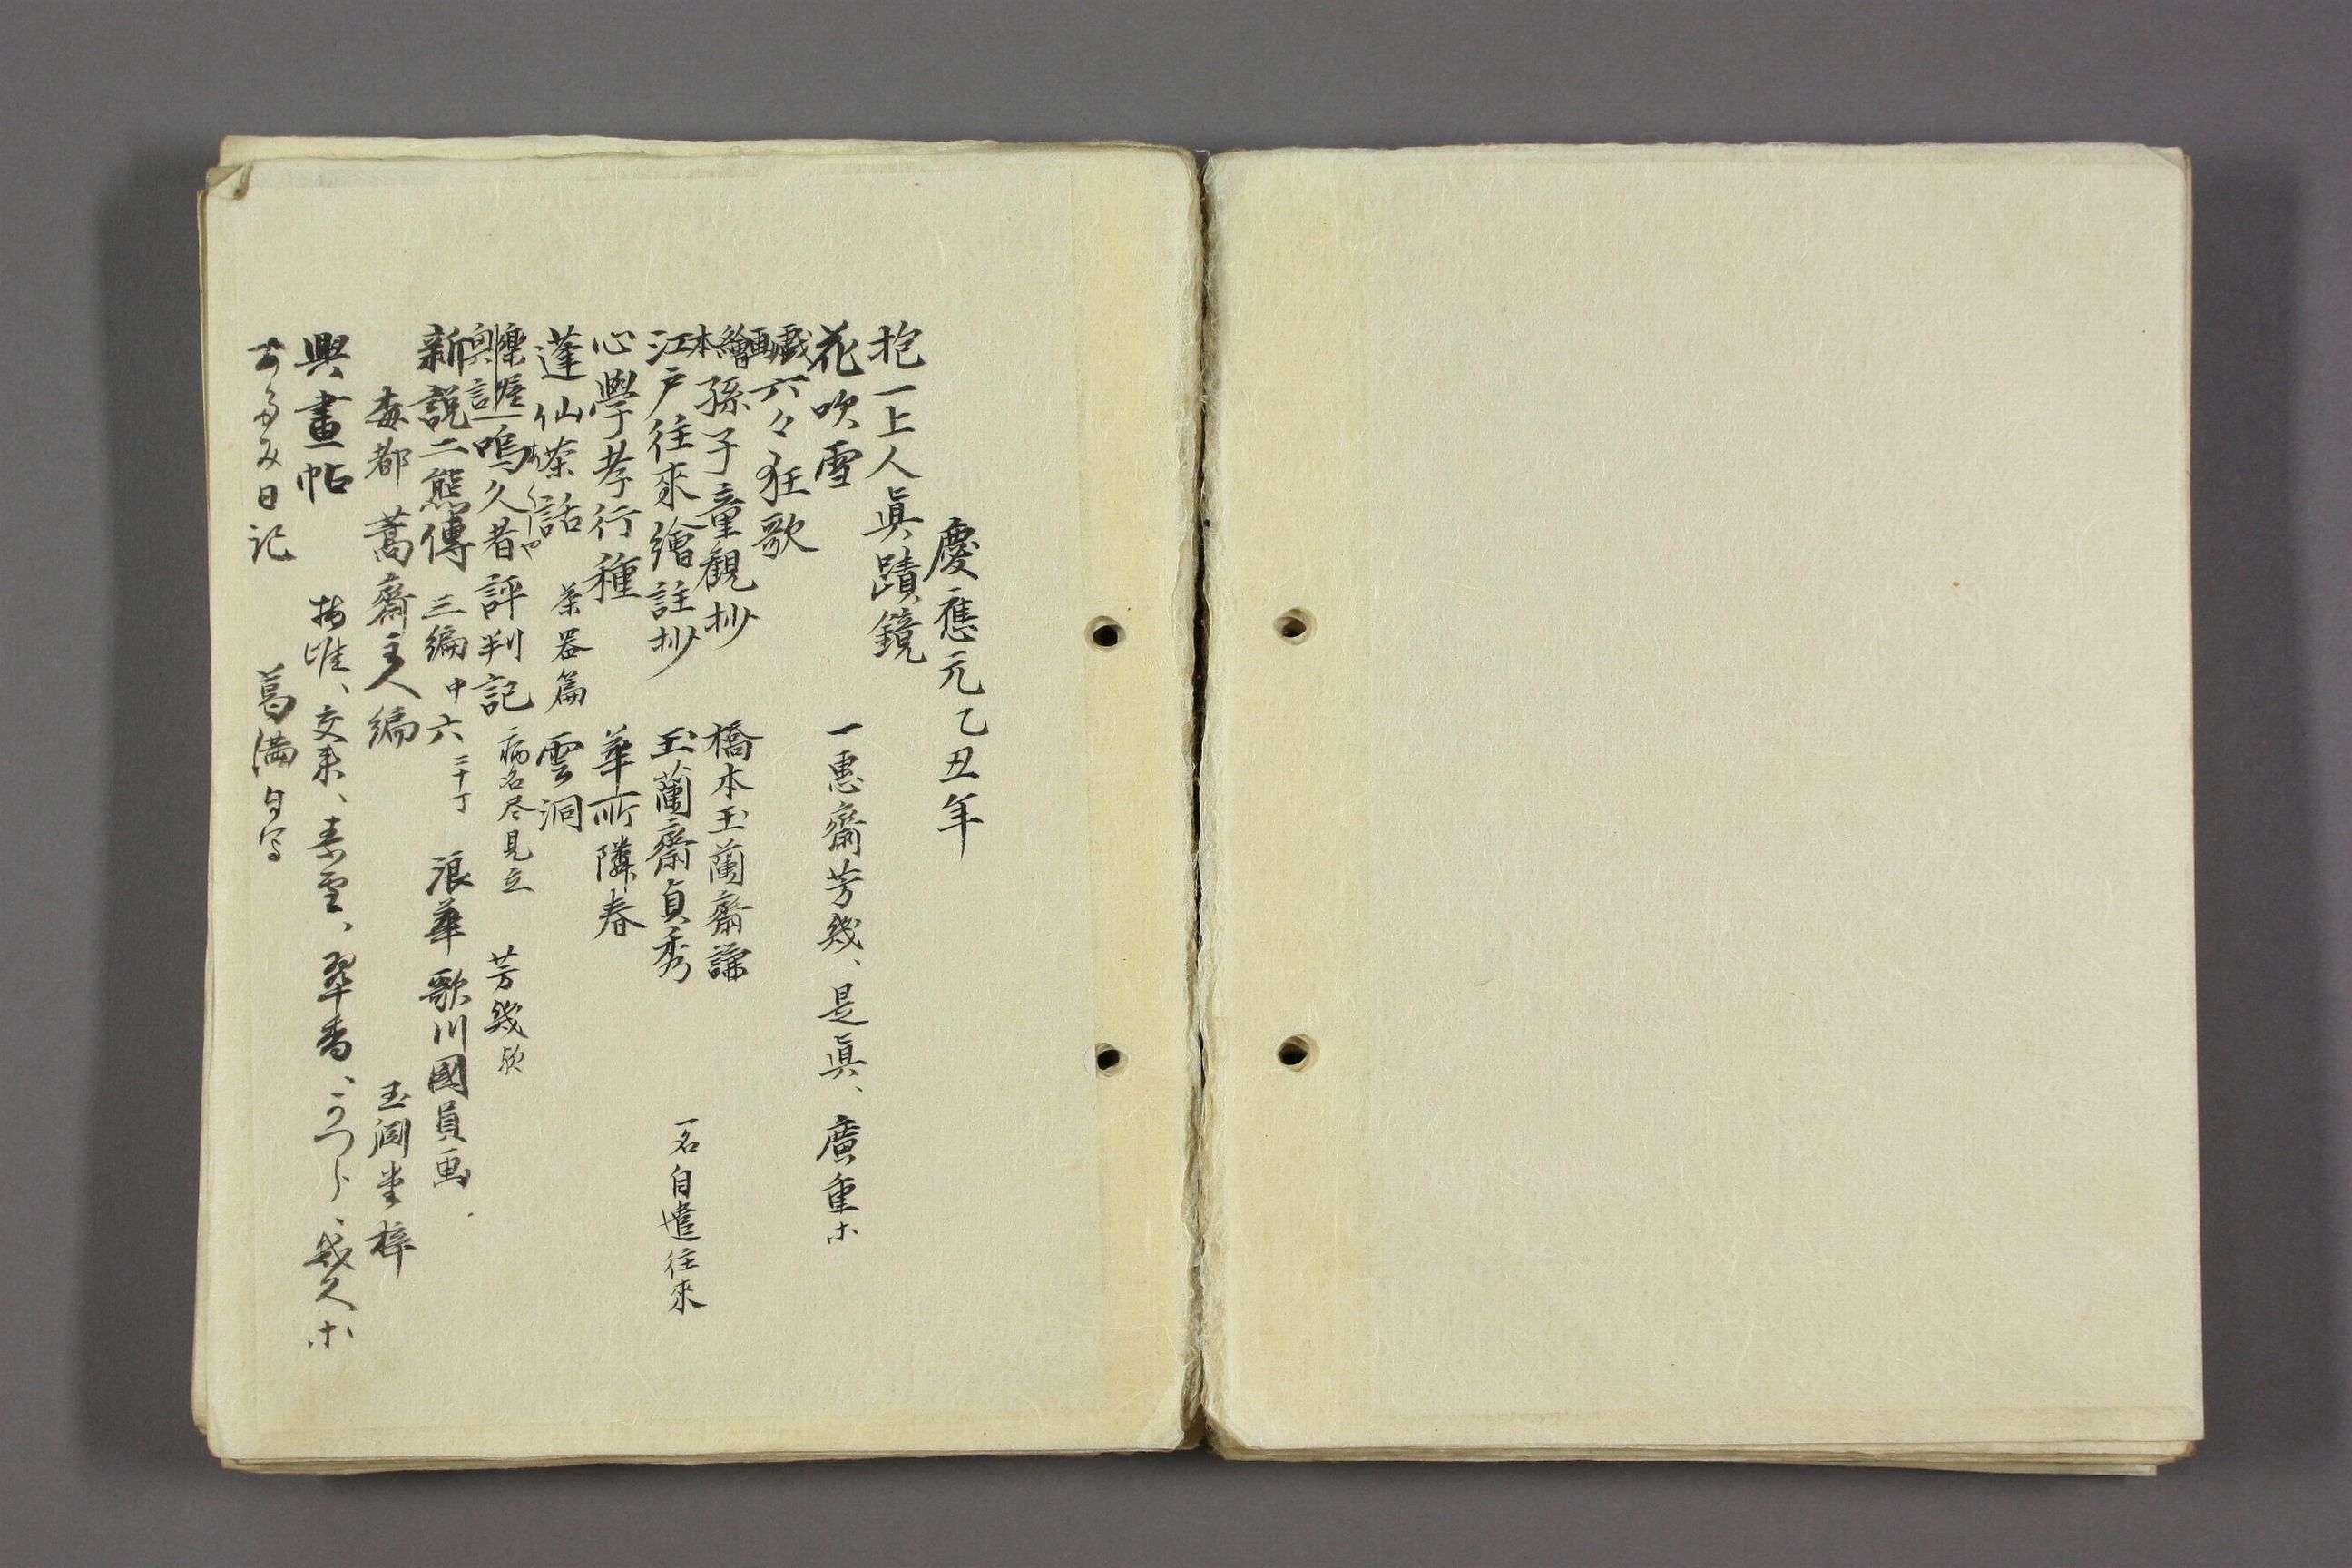 慶應元乙丑年
抱一上人眞蹟鏡
花吹雪　一惠齋芳幾、是眞、廣重ホ
戯画六々狂歌
繪本孫子童観抄　橋本玉蘭齋謙
江戸往來繪註抄　玉蘭齋貞秀　一名自遣往來
心學孝行種　華所隣春
蓬仙茶話　茶器篇　雲洞
興言嗚久者評判記　病名尽見立　芳幾
新説二熊傳　三編中六　二十丁　浪華歌川國員画
毎都　蒿齋主人編　玉潤堂梓
興畫帖　梅唯、交来、素雪、翠香、幾久ホ
日記　葛満自写